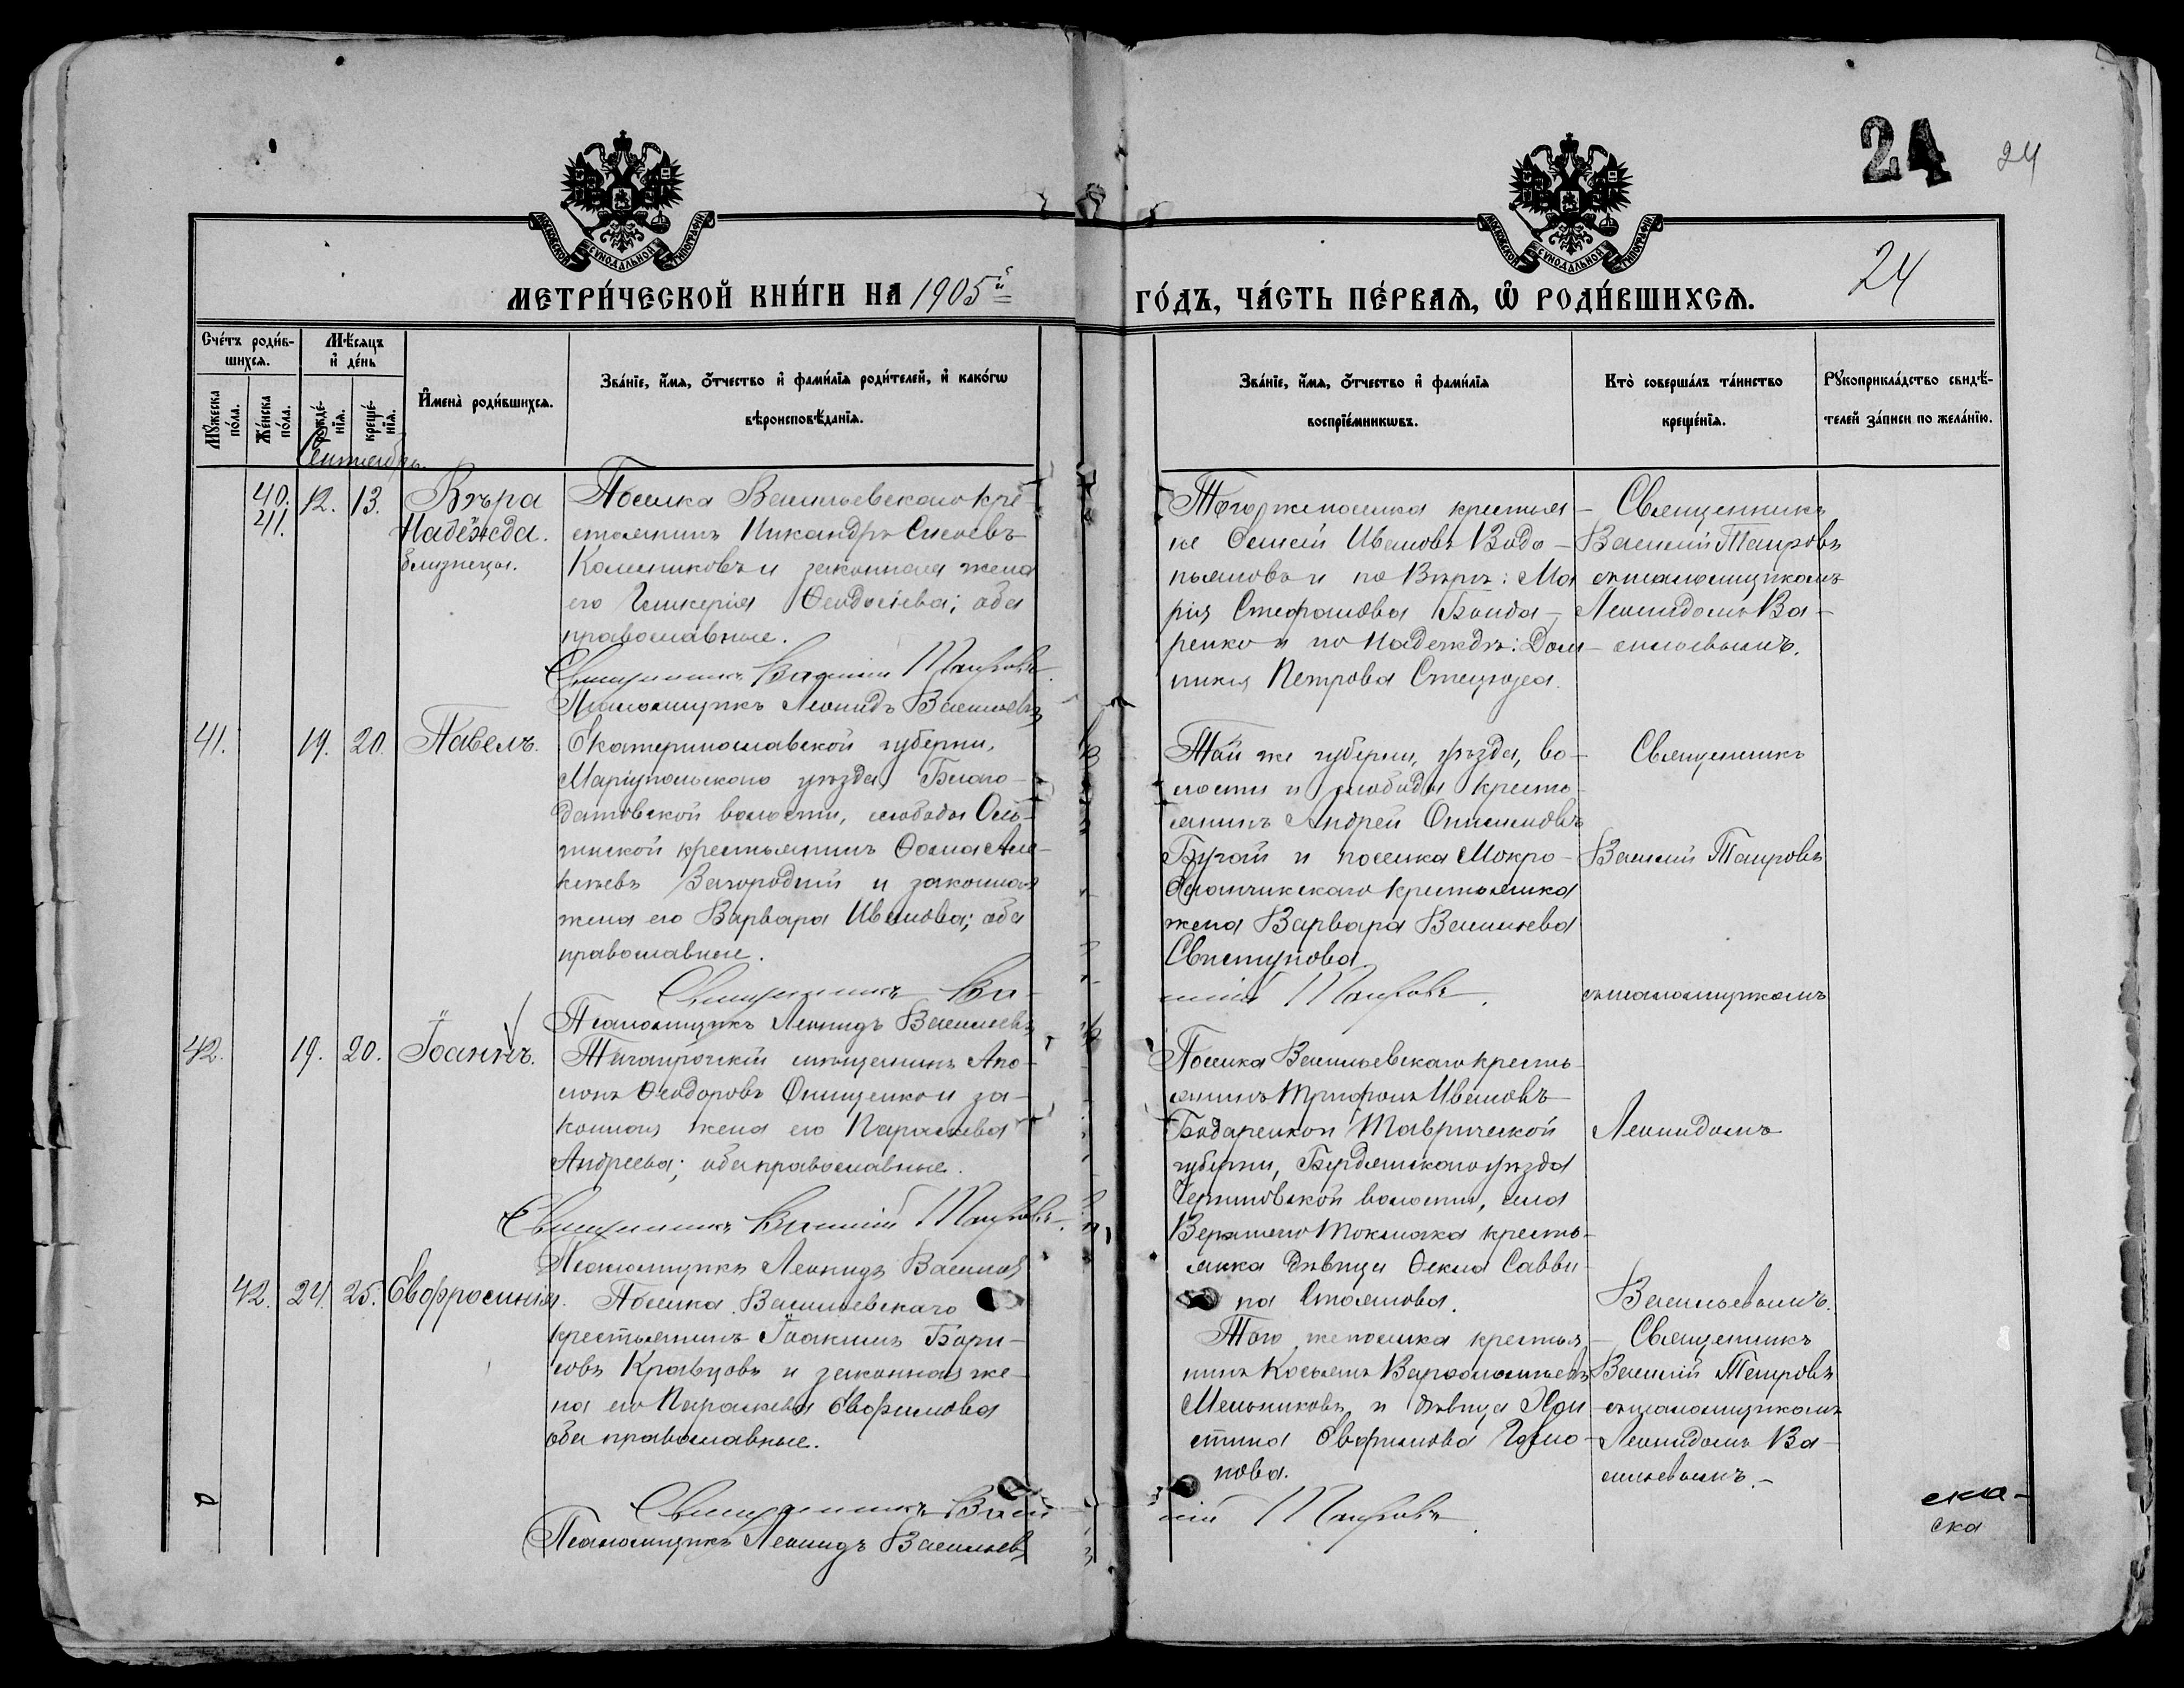 24
24
МОСКОВСКОЙ СѴНОДАЛЬНОЙ ТИПОГРАФІИ
МОСКОВСКОЙ СѴНОДАЛЬНОЙ ТИПОГРАФІИ
МЕТРИ́ЧЕСКОЙ КНИ́ГИ НА 1905й
ГО́ДЪ, ЧА́СТЬ ПЕ́РВАѦ, Ѡ РОДИ́ВШИХСѦ.
24
Сче́тъ роди́в-
шихсѧ.
Мꙋ́жеска
по́ла.
Же́нска
по́ла.
Мѣ́сѧцъ
и҆ де́нь
рожде́-
нїѧ.
креще́-
нїѧ.
И҆мена̀ роди́вшихсѧ.
Зва́нїе, и҆́мѧ, ѻ҆́тчество и҆ фами́лїѧ роди́телей, и҆ како́гѡ
вѣроисповѣ́данїѧ.
Зва́нїе, и҆́мѧ, ѻ҆́тчество и҆ фами́лїѧ
воспрїе́мникѡвъ.
Кто̀ соверша́лъ та́инство
креще́нїѧ.
Рꙋкоприкла́дство свидѣ́-
телей за́писи по жела́нїю.
Сентябрь.
40.
41.
12.
13.
Вѣра
Надежда.
близнецы.
Поселка Васильевскаго кре
стьянинъ Никандръ Сысоевъ
Калениковъ и законная жена
его Гликерія Ѳеодосіева; оба
православные.
Священникъ Василій Таировъ.
Псаломщикъ Леонидъ Васильевъ
Того же поселка крестья-
не Василій Таировъ
пьяновъ и по Вѣрѣ: Ма
рія Стефанова Бонда-
ренко и по Надеждѣ: Дом-
никія Петрова Стецура.
Священникъ
Василій Таировъ
съ псаломщикомъ
Леонидомъ Ва-
сильевымъ.
41.
19.
20.
Павелъ.
Екатеринославской губерніи,
Маріупольскаго уѣзда, Благо-
датовской волости, слободы Оль-
гинской крестьянинъ Ѳома Але-
ксѣевъ Загородній и законная
жена его Варвара Иванова; оба
православные.
Священникъ Ва-
Псаломщикъ Леонидъ Васильевъ
Той же губерніи, уѣзда, во-
лости и слободы кресть-
янинъ Андрей Онисимовъ
Бугай и поселка Мокро-
Еланчикскаго крестьянка
жена Варвара Васильева
Свистунова
силій Таировъ.
Священникъ
Василій Таировъ
съ псаломщикомъ
42.
19.
20.
Іоаннъ.
Таганрогскій мѣщанинъ Апо-
лонъ Ѳеодоровъ Онищенко и за-
конная жена его Параскева
Андреева; оба православные.
Священникъ Василій Таировъ.
Псаломщикъ Леонидъ Васильев
Поселка Васильевскаго кресть-
янинъ Трифонъ Ивановъ
Бодаренко и Таврической
губерніи, Бердянскаго уѣзда
волости, села
Верхняго Токмака кресть-
янка дѣвица Ѳекла Савви-
на Стоянова.
Леонидомъ
Васильевымъ.
42.
24.
25.
Евфросинія.
Поселка Васильевскаго
крестьянинъ Іоакимъ Бори-
совъ Кравцовъ и законная же-
на его Параскева Евфимова
оба православные.
Священникъ Васи
Псаломщикъ Леонидъ Васильевъ
Того же поселка крестья-
нинъ Косьма Варѳоломѣевъ
Мельниковъ и дѣвица Хри-
стина Евфимова
нова.
лій Таировъ.
Священникъ
Василій Таировъ
съ псаломщикомъ
Леонидомъ Ва-
сильевымъ.-
ска